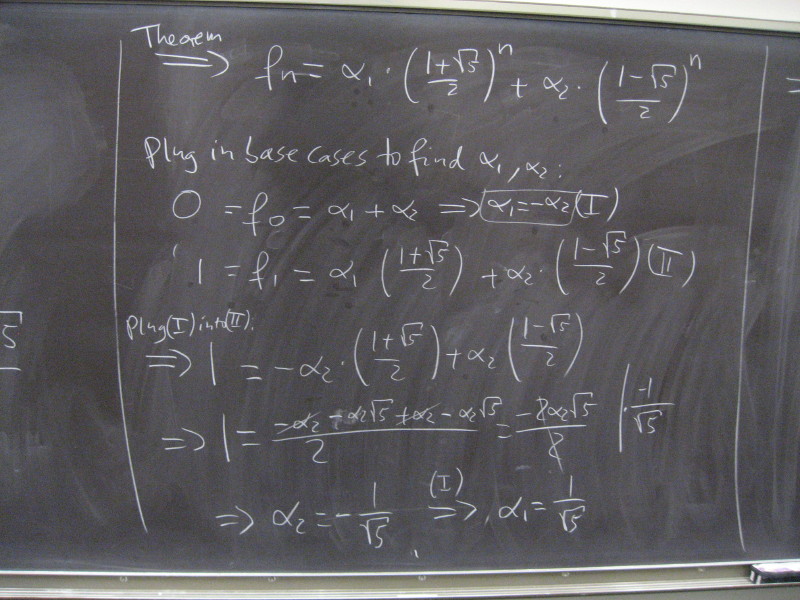 Theorem
⟹ fn = α₁ · ((1+√5)/2)ⁿ + α₂ · ((1-√5)/2)ⁿ
Plug in base cases to find α₁, α₂:
0 = f₀ = α₁ + α₂ ⟹ α₁=-α₂ (I)
1 = f₁ = α₁ ((1+√5)/2) + α₂· ((1-√5)/2) (II)
Plug (I) into (II):
⟹ 1 = -α₂· ((1+√5)/2) + α₂ ((1-√5)/2)
⟹ 1 = (-α₂ - α₂√5 + α₂ - α₂√5)/2 = (-2α₂√5)/2 | · -1/√5
⟹ α₂ = - 1/√5 (I) ⟹ α₁ = 1/√5
5